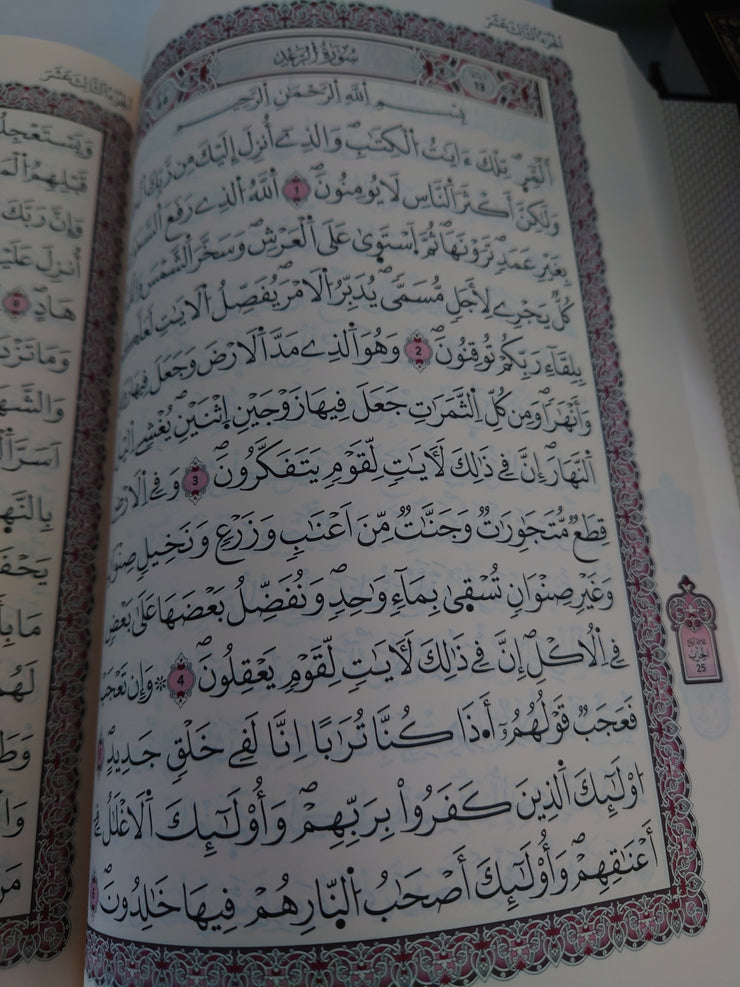 الجزء الثالث عشر
سورة الرعد
13
بِسْمِ اِللَّهِ اِلرَّحْمَٰنِ اِلرَّحِيمِ
أَلَٓمِّٓرۖ تِلْكَ ءَايَٰتُ اُلْكِتَٰبِۖ وَالذِےٓ أُنزِلَ إِلَيْكَ مِن رَّبِّكَ
وَلَٰكِنَّ أَكْثَرَ اَلنَّاسِ لَا يُومِنُونَۖ 1 اَللَّهُ اُلذِے رَفَعَ
بِغَيْرِ عَمَدٖ تَرَوْنَهَاۖ ثُمَّ اَسْتَوَىٰ عَلَى اَلْعَرْشِۖ وَسَخَّرَ اَلشَّمْسَ
كُلّٞ يَجْرِے لِأَجَلٖ مُّسَمّىٗۖ يُدَبِّرُ اُلَامْرَ يُفَصِّلُ اُلَايَٰتِ
بِلِقَآءِ رَبِّكُمْ تُوقِنُونَۖ 2 وَهُوَ اَلذِے مَدَّ اَلَارْضَ وَجَعَلَ فِيهَا
وَأَنْهَٰراٗۖ وَمِن كُلِّ اِلثَّمَرَٰتِ جَعَلَ فِيهَا زَوْجَيْنِ اِثْنَيْنِۖ يُغْشِے اِليْلَ
اَلنَّهَارَۖ إِنَّ فِے ذَٰلِكَ لَأٓيَٰتٖ لِّقَوْمٖ يَتَفَكَّرُونَۖ 3 وَفِے اِلَارْضِ
قِطَعٞ مُّتَجَٰوِرَٰتٞ وَجَنَّٰتٞ مِّنَ اَعْنَٰبٖ وَزَرْعٖ وَنَخِيلٖ
وَغَيْرِ صِنْوَانٖ تُسْقَىٰ بِمَآءٖ وَٰحِدٖۖ وَنُفَضِّلُ بَعْضَهَا عَلَىٰ بَعْضٖ
فِے اِلُاكْلِۖ إِنَّ فِے ذَٰلِكَ لَأٓيَٰتٖ لِّقَوْمٖ يَعْقِلُونَۖ 4 ۞ وَإِن تَعْجَبْ
فَعَجَبٞ قَوْلُهُمُۥٓ أَ.ذَا كُنَّا تُرَٰباً اِنَّا لَفِے خَلْقٖ جَدِيدٍۖ
اُوْلَٰٓئِكَ اَلذِينَ كَفَرُواْ بِرَبِّهِمْۖ وَأُوْلَٰٓئِكَ اَلَاغْلَٰلُ فِےٓ
أَعْنَٰقِهِمْۖ وَأُوْلَٰٓئِكَ أَصْحَٰبُ اُلنّ۪ارِ هُمْ فِيهَا خَٰلِدُونَۖ
الحزب
25
الجزء الثالث عشر
وَيَسْتَعْجِلُ
قَبْلِهِمُ
وَإِنَّ رَبَّكَ
أُنزِلَ
هَادٍۖ 8
وَمَا تَزْدَ
وَالشَّهَ
اَسَرَّ
بِالنَّه
يَحْفَ
مَا بِأَ
لَهُم
وَطَ
مَنْ